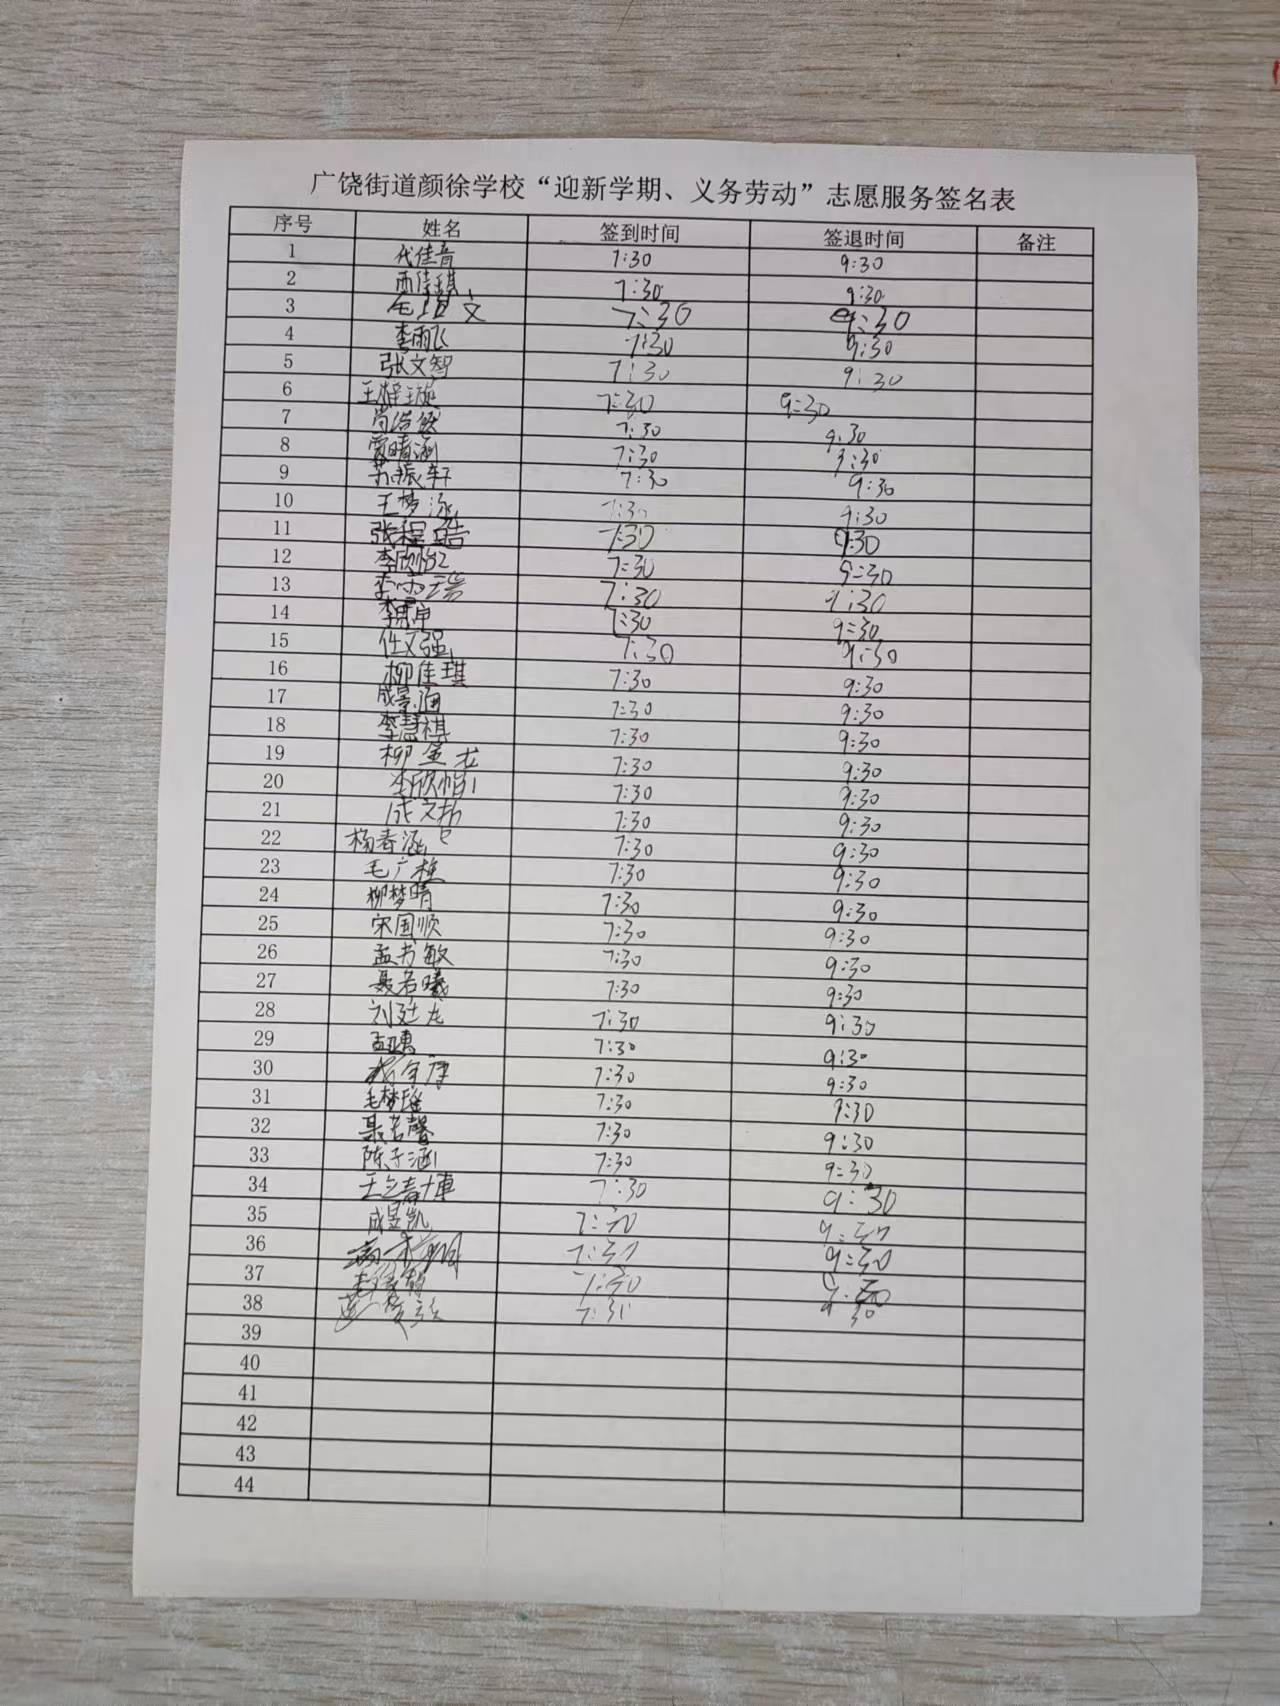 广饶街道颜徐学校“迎新学期、义务劳动”志愿服务签名表
序号 姓名 签到时间 签退时间 备注
1 代佳音 7:30 9:30
2 佳琪 7:30 9:30
3 文 7:30 9:30
4 李雨飞 7:30 9:30
5 张文智 7:30 9:30
6 王 7:30 9:30
7 7:30 9:30
8 晴涵 7:30 9:30
9 苏振轩 7:30 9:30
10 王梦泳 7:30 9:30
11 张程皓 7:30 9:30
12 李欣怡 7:30 9:30
13 李 7:30 9:30
14 李 7:30 9:30
15 任文强 7:30 9:30
16 柳佳琪 7:30 9:30
17 成景涵 7:30 9:30
18 李慧祺 7:30 9:30
19 柳金龙 7:30 9:30
20 李欣怡 7:30 9:30
21 成文 7:30 9:30
22 杨春涵 7:30 9:30
23 毛广 7:30 9:30
24 柳梦晴 7:30 9:30
25 宋国顺 7:30 9:30
26 孟书敏 7:30 9:30
27 聂若曦 7:30 9:30
28 刘廷龙 7:30 9:30
29 孟 7:30 9:30
30 7:30 9:30
31 毛梦瑶 7:30 9:30
32 聂若馨 7:30 9:30
33 陈子涵 7:30 9:30
34 王 博 7:30 9:30
35 成昱凯 7:30 9:30
36 7:30 9:30
37 7:30 9:30
38 7:31 9:30
39
40
41
42
43
44